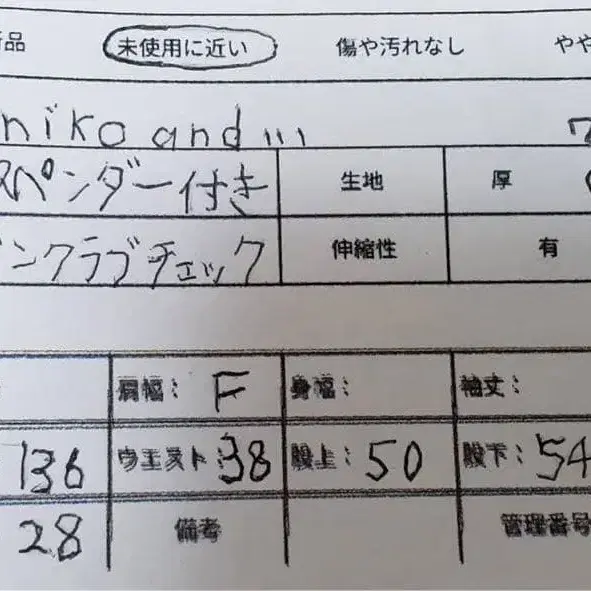 品 未使用に近い 傷や汚れなし やや
niko and ...
スペンダー付き 生地 厚
ンクラブチェック 伸縮性 有
肩幅: F 身幅: 袖丈:
136 ウエスト: 38 股上: 50 股下: 54
28 備考 管理番号